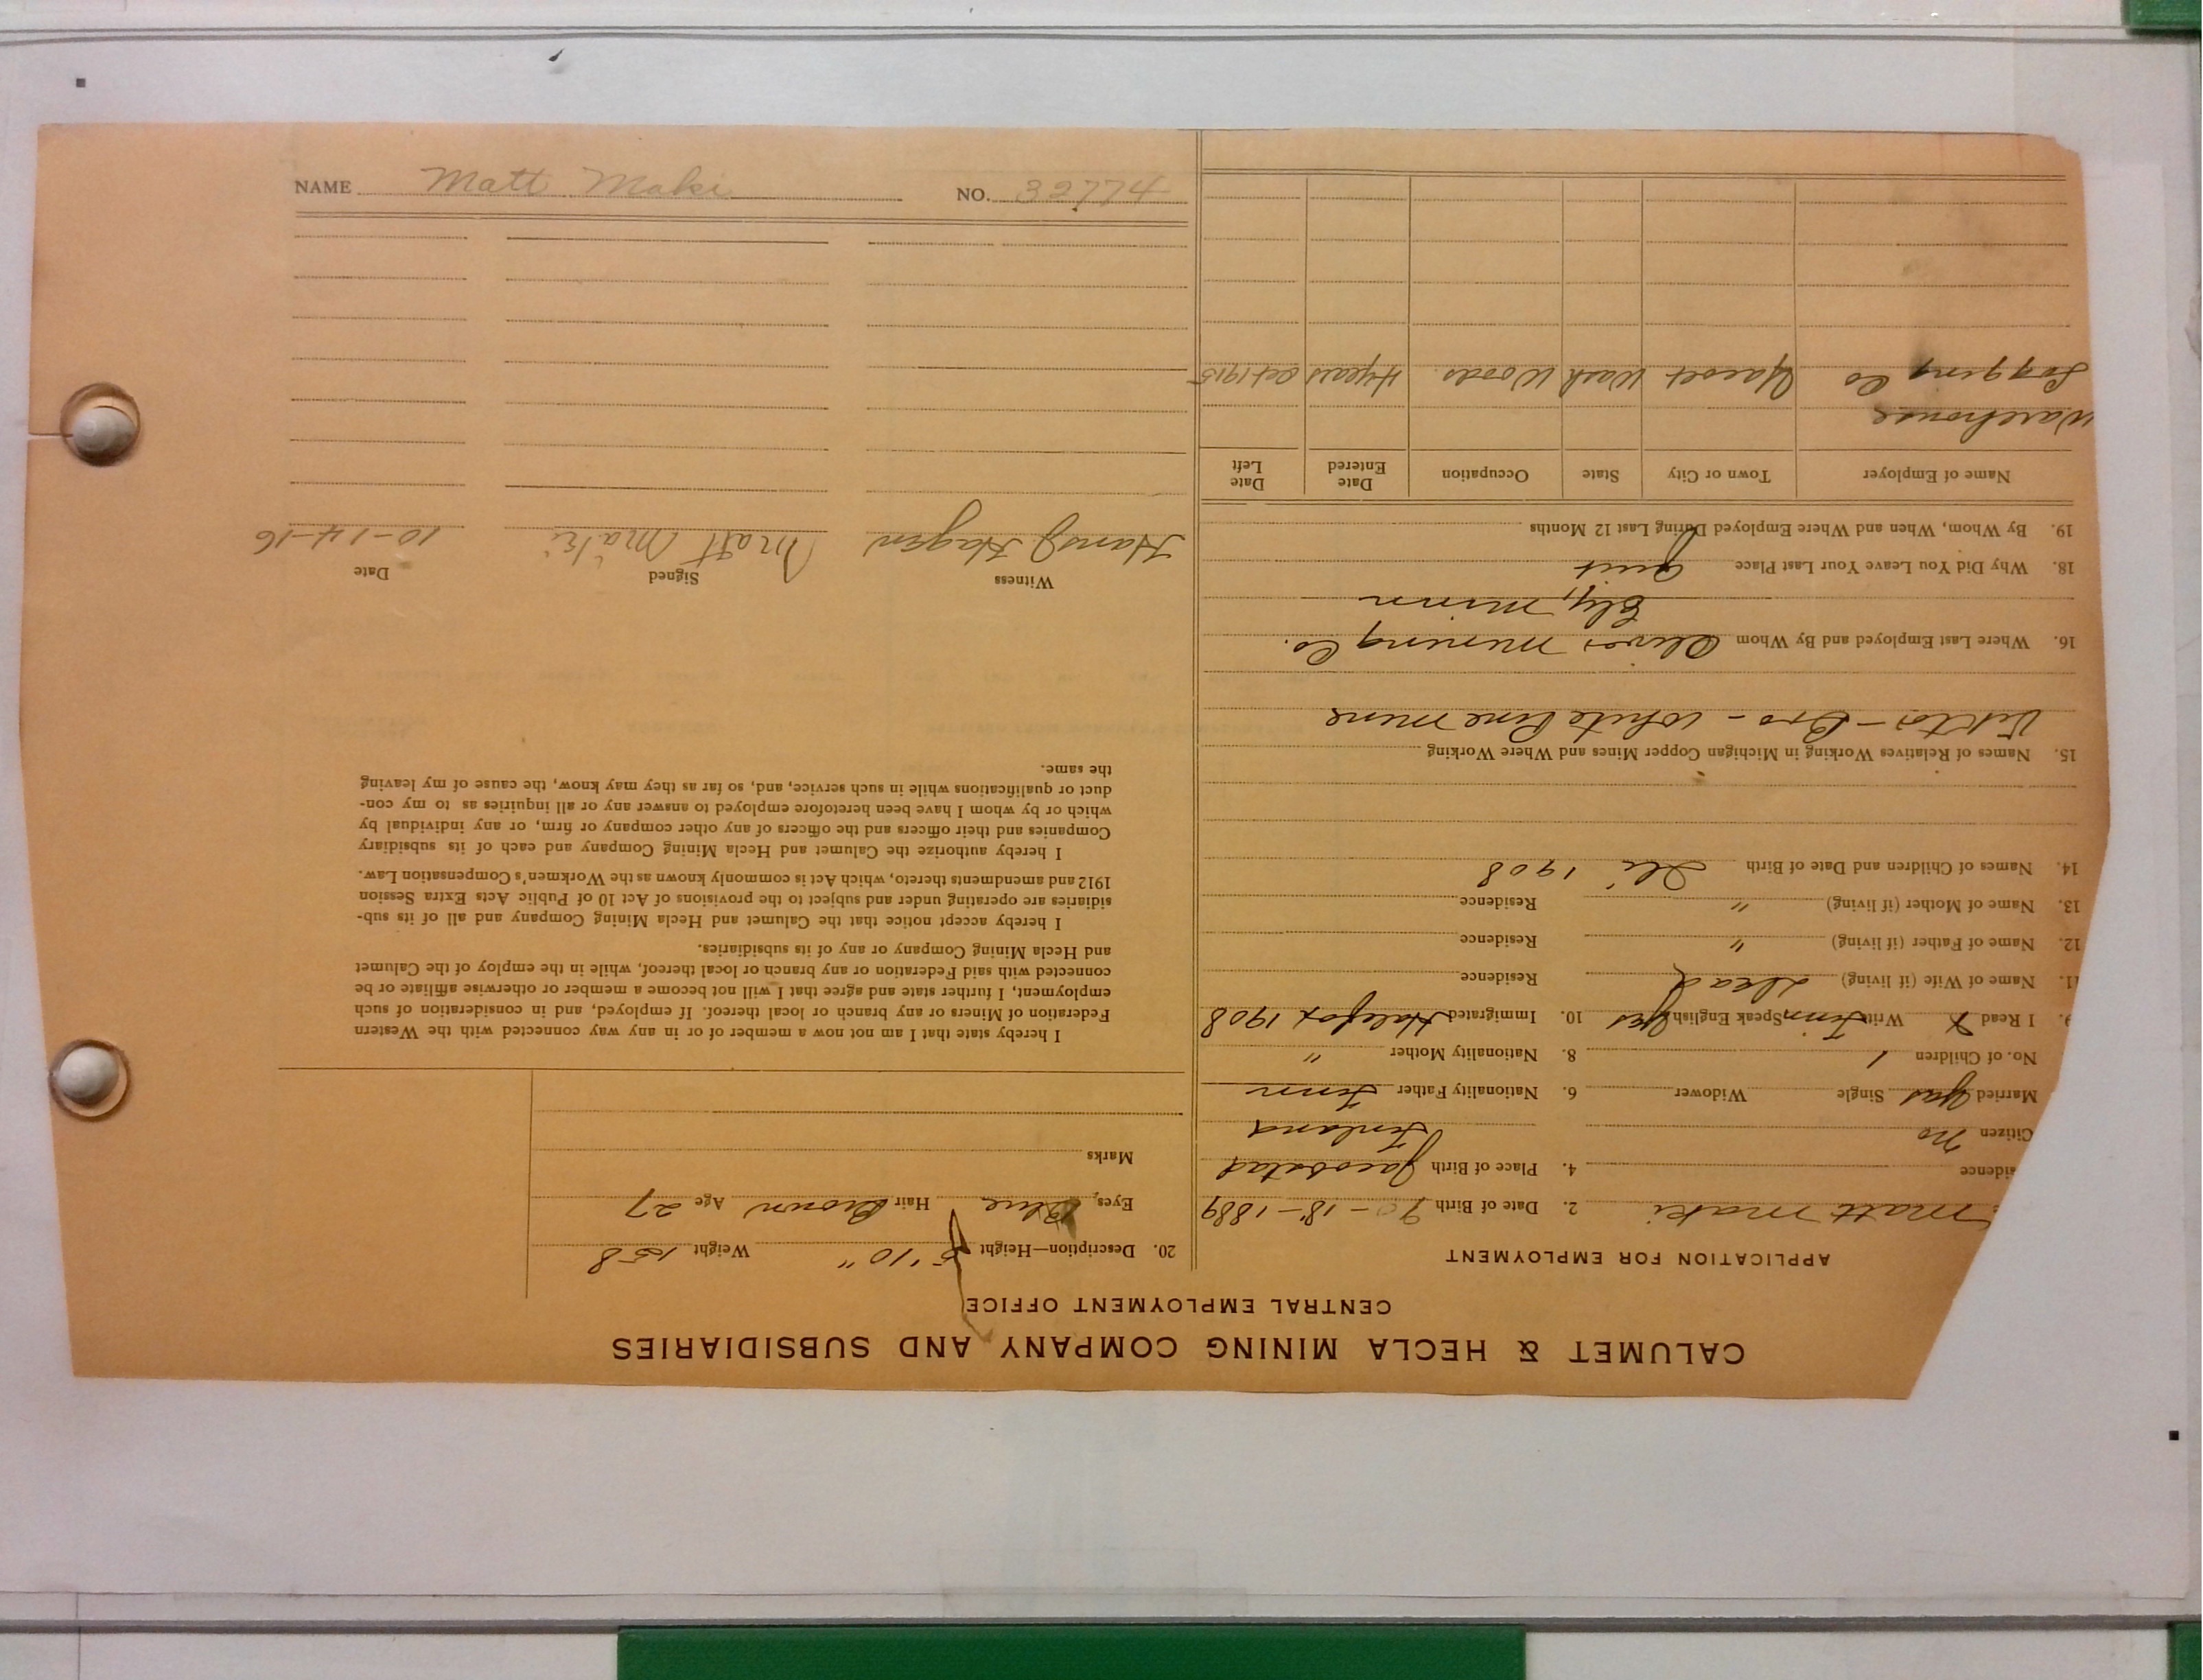 CALUMET & HECLA MINING COMPANY AND SUBSIDIARIES
CENTRAL EMPLOYMENT OFFICE
APPLICATION FOR EMPLOYMENT
Matt Maki 2. Date of Birth -18-1889
idence 4. Place of Birth Jacobstad
Citizen no Finland
Married yes Single Widower 6. Nationality Father Finn
No. of Children 1 8. Nationality Mother "
9. I Read X Write Finn Speak English yes 10. Immigrated Halifax 1908
11. Name of Wife (if living) Dead Residence
12. Name of Father (if living) " Residence
13. Name of Mother (if living) " Residence
14. Names of Children and Date of Birth 1908
15. Names of Relatives Working in Michigan Copper Mines and Where Working
Viktor - Bro - White Pine Mine
16. Where Last Employed and By Whom Oliver Mining Co.
Ely, Minn
18. Why Did You Leave Your Last Place quit
19. By Whom, When and Where Employed During Last 12 Months
Name of Employer Town or City State Occupation Date Entered Date Left
Warehouse
Logging Co Yacolt Wash Woods 4 years Oct 1915
20. Description—Height 5'10" Weight 158
Eyes, Blue Hair Brown Age 27
Marks
I hereby state that I am not now a member of or in any way connected with the Western
Federation of Miners or any branch or local thereof. If employed, and in consideration of such
employment, I further state and agree that I will not become a member or otherwise affiliate or be
connected with said Federation or any branch or local thereof, while in the employ of the Calumet
and Hecla Mining Company or any of its subsidiaries.
I hereby accept notice that the Calumet and Hecla Mining Company and all of its sub-
sidiaries are operating under and subject to the provisions of Act 10 of Public Acts Extra Session
1912 and amendments thereto, which Act is commonly known as the Workmen's Compensation Law.
I hereby authorize the Calumet and Hecla Mining Company and each of its subsidiary
Companies and their officers and the officers of any other company or firm, or any individual by
which or by whom I have been heretofore employed to answer any or all inquiries as to my con-
duct or qualifications while in such service, and, so far as they may know, the cause of my leaving
the same.
Witness Signed Date
Hans J Hagen Matt Maki 10-14-16
NAME Matt Maki NO. 32774